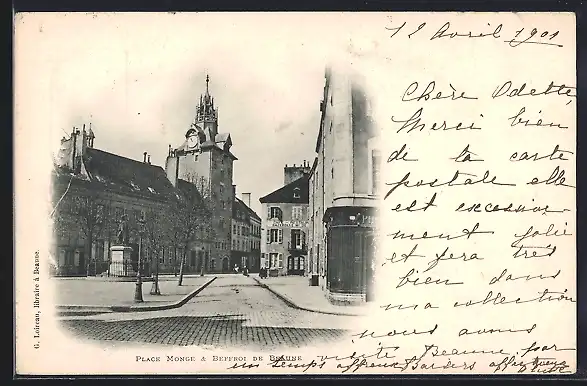 12 Avril 1901
Chère Odette,
Merci bien
de ta carte
postale elle
est excessive-
ment jolie
et fera très
bien dans
ma collection
nous avons
visité Beaune, par
un temps affreux Baisers affectueux
G. Loireau, libraire à Beaune.
PLACE MONGE & BEFFROI DE BEAUNE